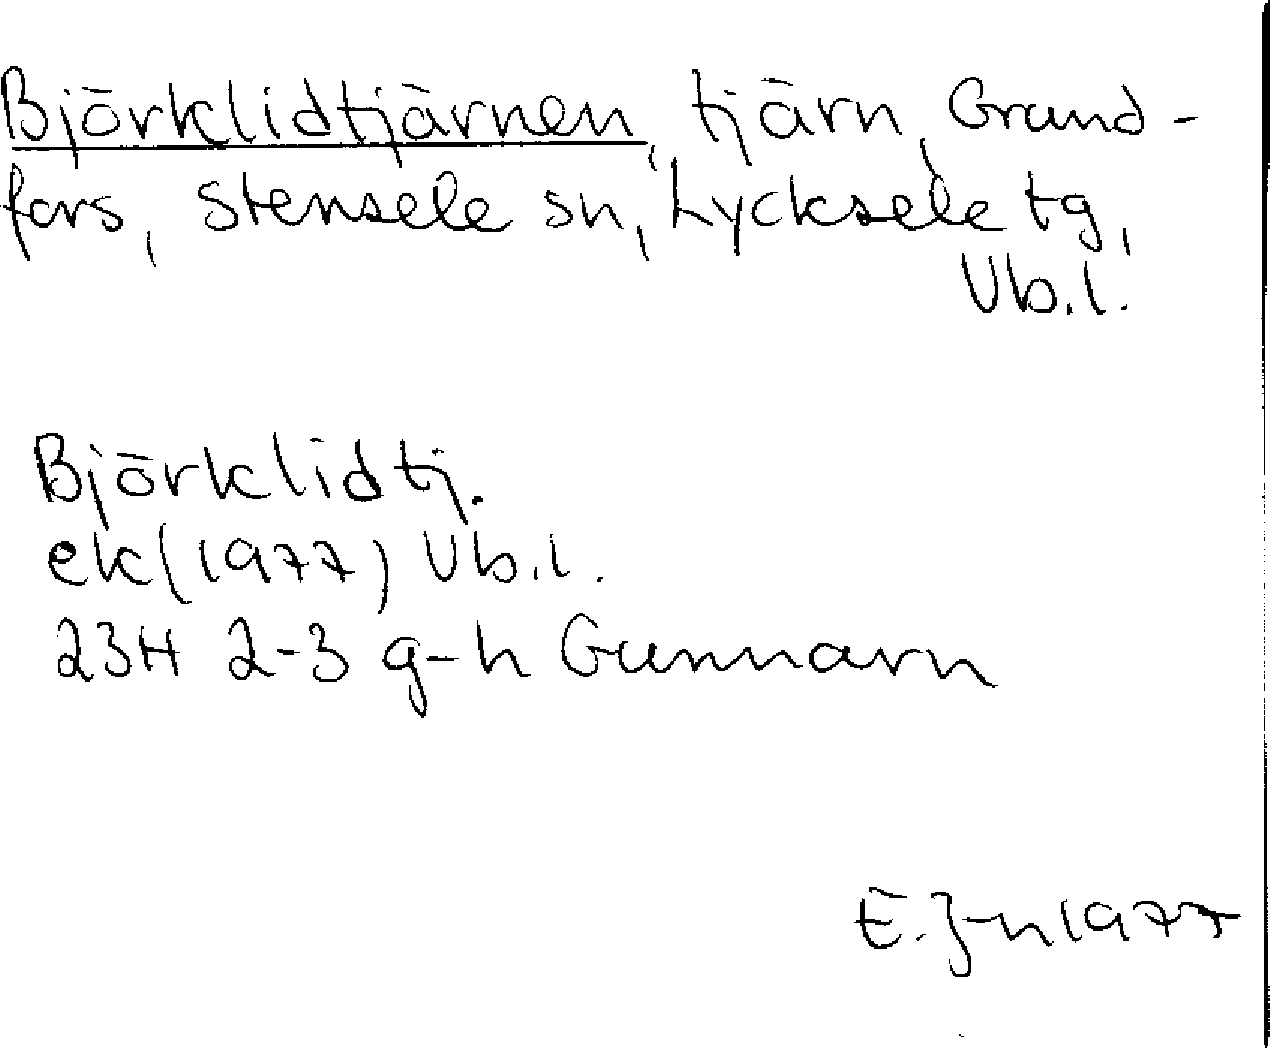 Björklidtjärnen, tjärn, Grund-
fors, Stensele sn, Lycksele tg,
Vb.l.
Björklidtj.
ek (1977) Vb.l.
23H 2-3 g-h Gunnarn
E. J-n 1977